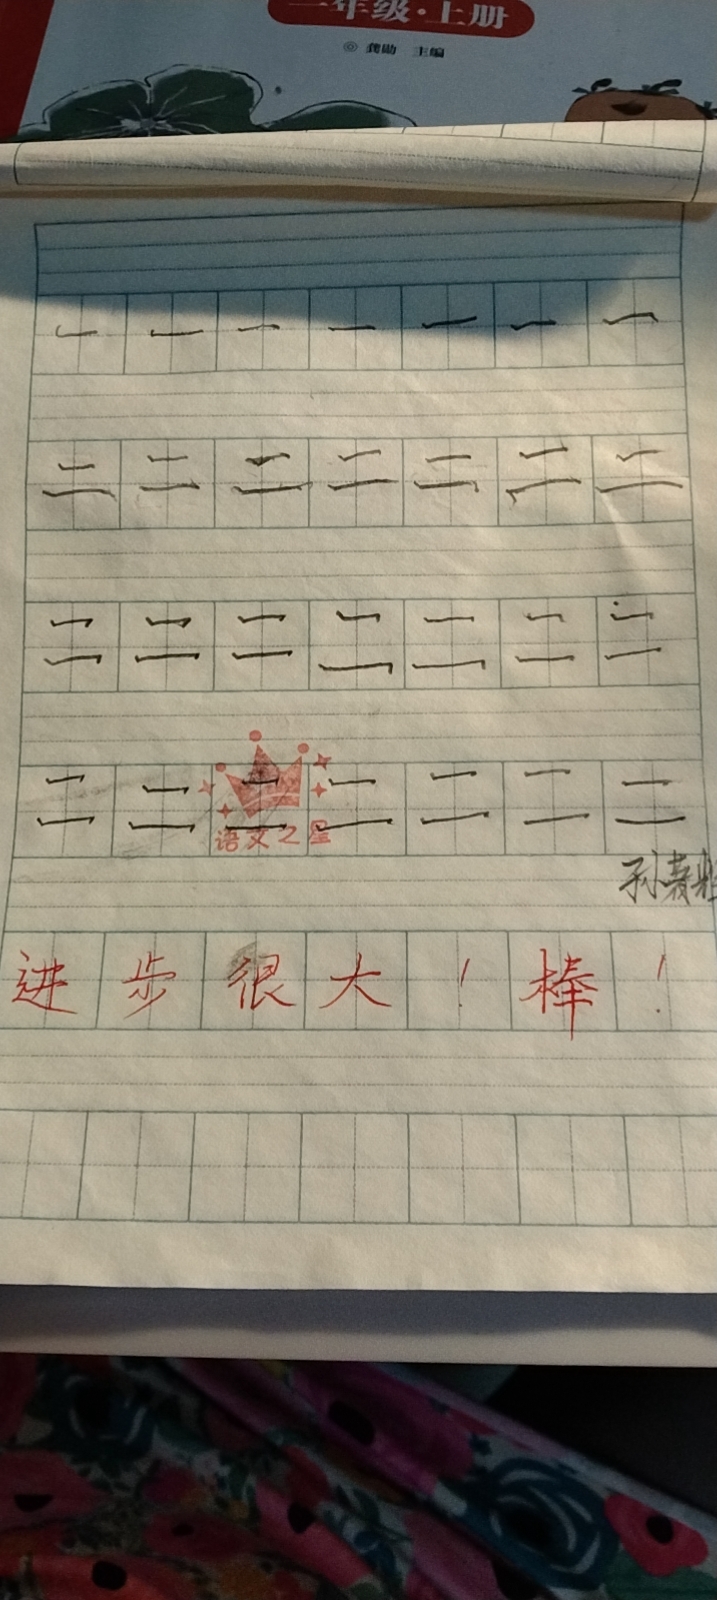 年级·上册
◎ 龚勋 主编
一 一 一 一 一 一 一
二 二 二 二 二 二 二
二 二 二 二 二 二 二
二 二 二 二 二 二 二
语文之星
孙
进步很大！棒！